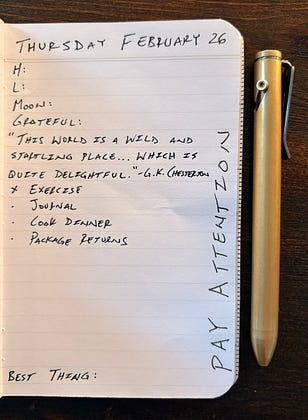 THURSDAY FEBRUARY 26
H:
L:
MOON:
GRATEFUL:
"THIS WORLD IS A WILD AND
STARTLING PLACE... WHICH IS
QUITE DELIGHTFUL."-G.K. CHESTERTON
x EXERCISE
· JOURNAL
· COOK DINNER
· PACKAGE RETURNS
PAY ATTENTION
BEST THING: